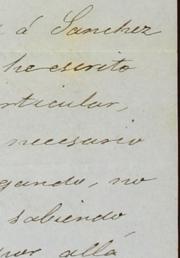 á Sanchez
he escrito
rticular,
necesario
gando, no
sabiendo
por allá